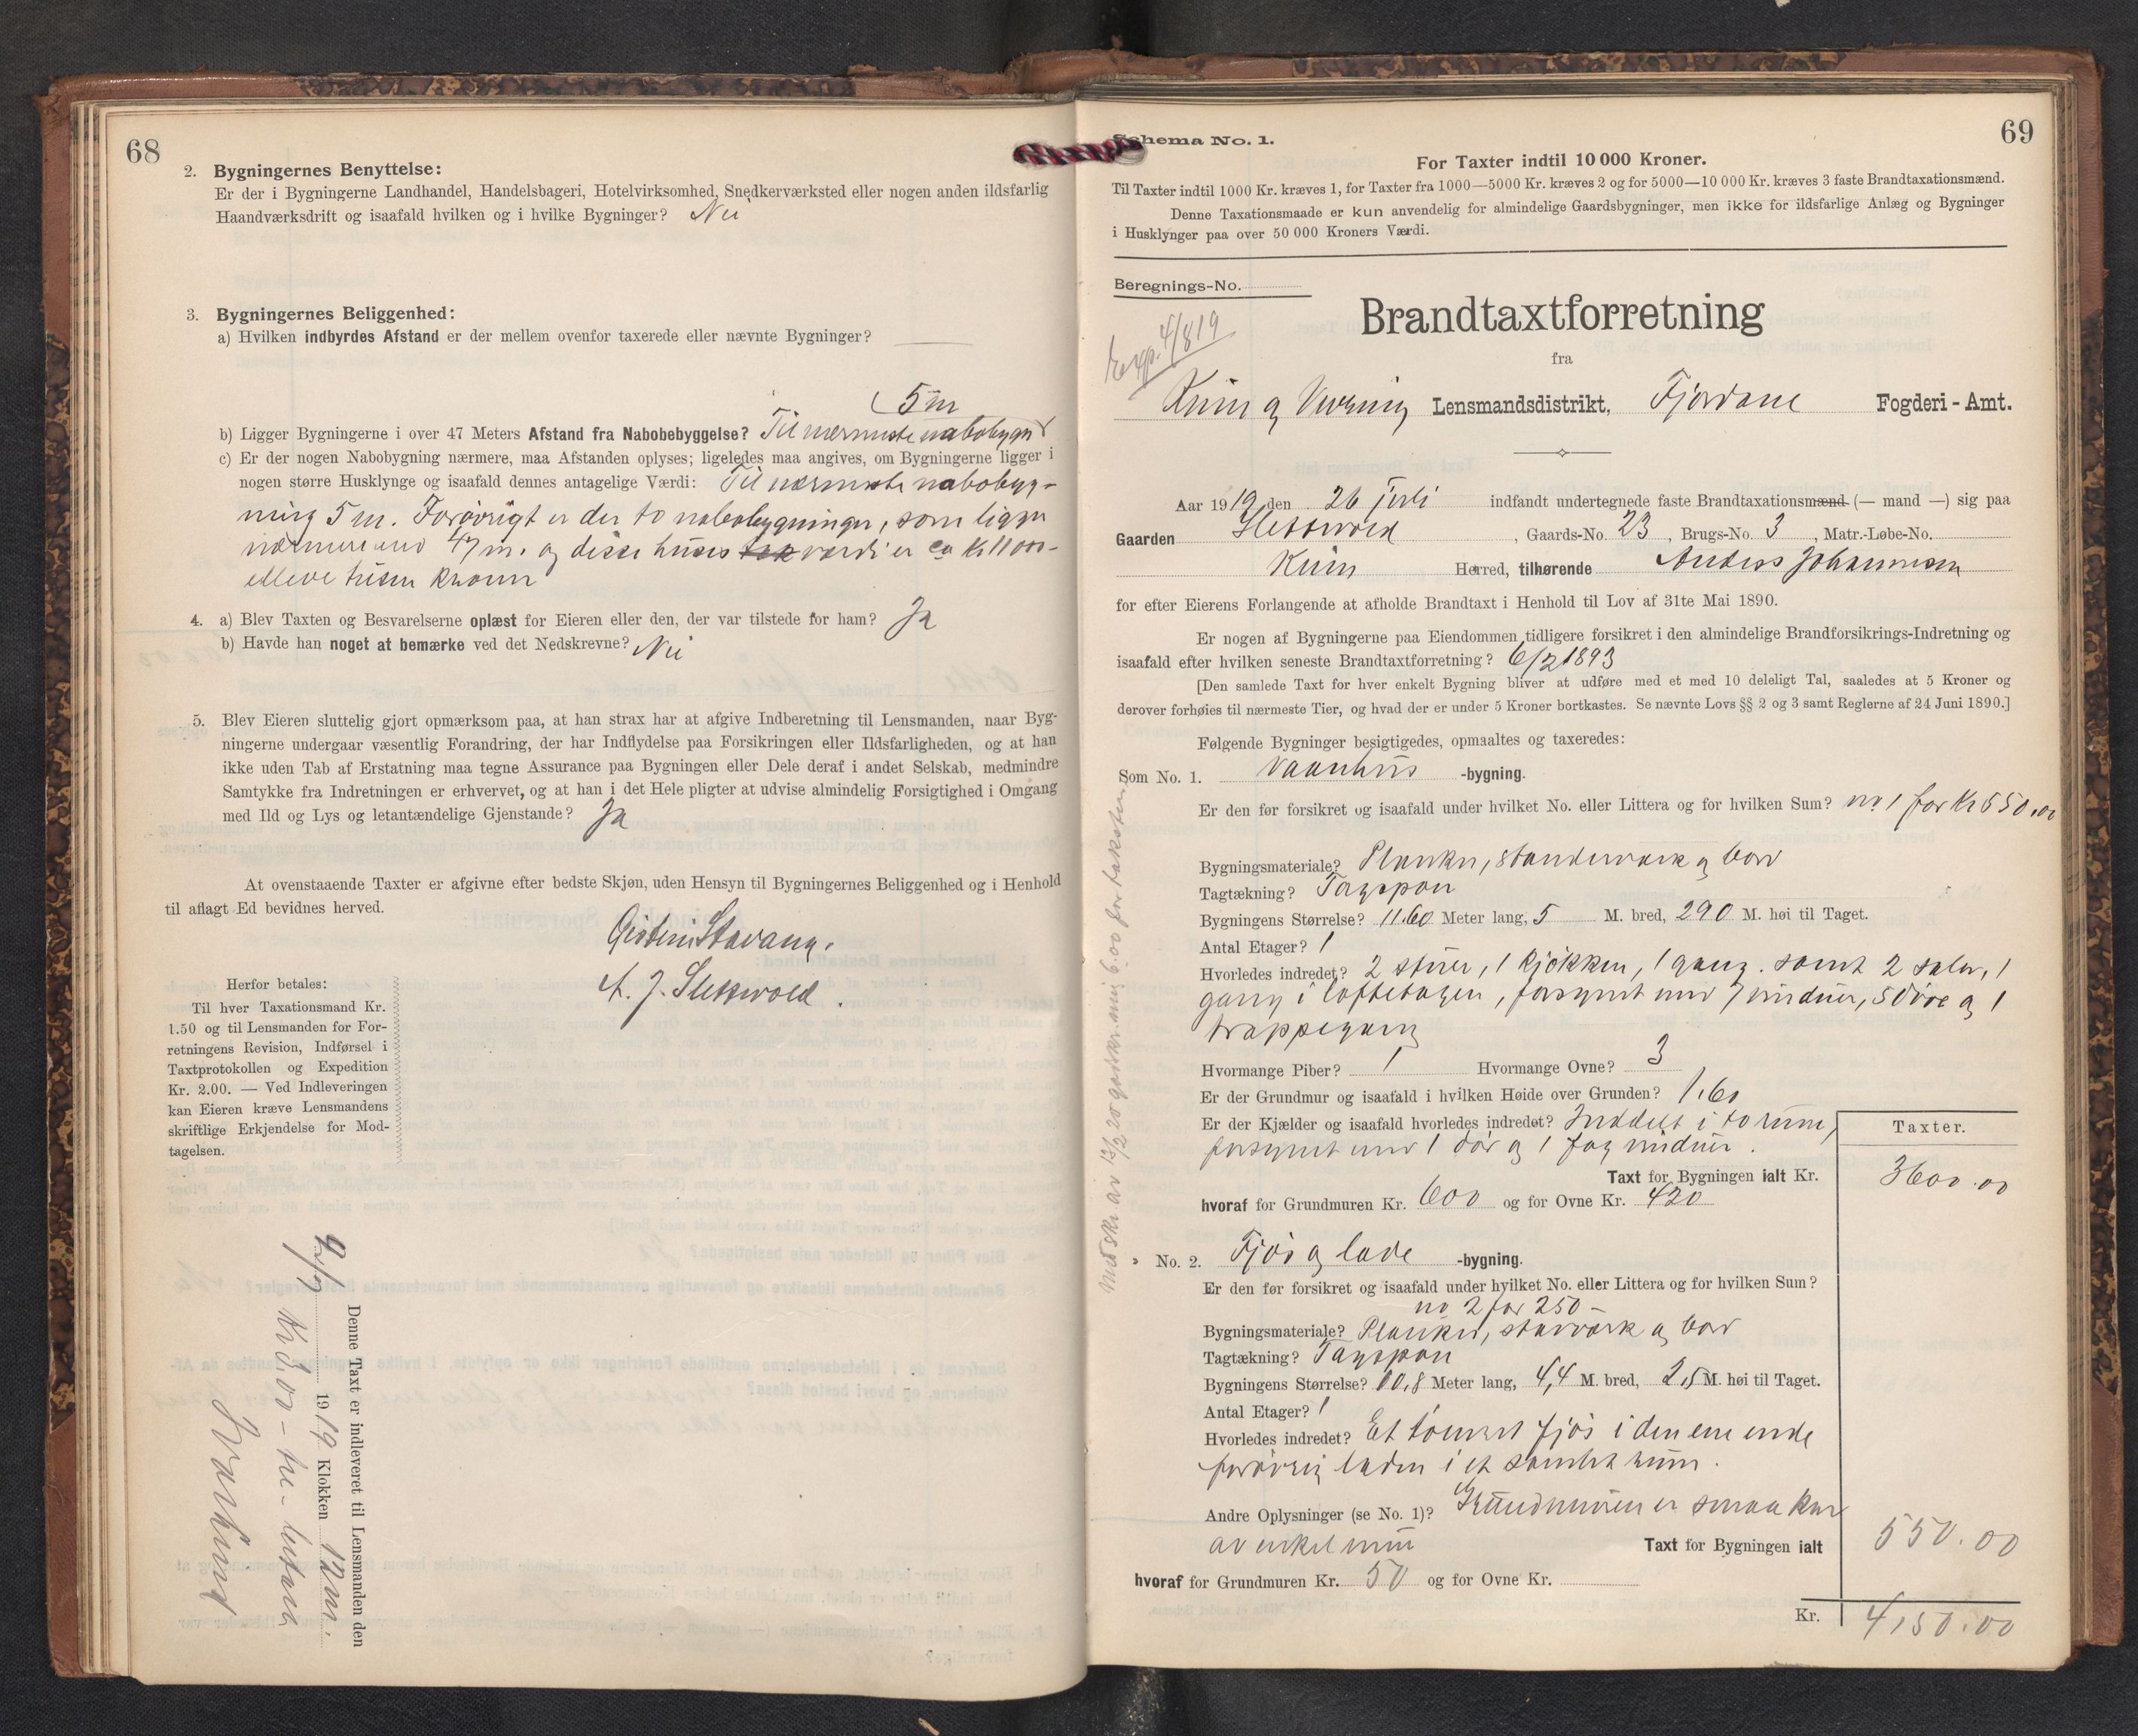 68
2. Bygningernes Benyttelse:
Er der i Bygningerne Landhandel, Handelsbageri, Hotelvirksomhed, Snedkerværksted eller nogen anden ildsfarlig
Haandværksdrift og isaafald hvilken og i hvilke Bygninger? Nei
3. Bygningernes Beliggenhed:
a) Hvilken indbyrdes Afstand er der mellem ovenfor taxerede eller nævnte Bygninger?
5 m
b) Ligger Bygningerne i over 47 Meters Afstand fra Nabobebyggelse? Til nærmeste nabobygn
c) Er der nogen Nabobygning nærmere, maa Afstanden oplyses; ligeledes maa angives, om Bygningerne ligger i
nogen større Husklynge og isaafald dennes antagelige Værdi: Til nærmeste nabobyg-
ning 5 m. Forøvrigt er der to nabobygninger, som ligger
nærmere end 47 m. og disse huses værdi er ca kr 11000-
elleve tusen kroner
4. a) Blev Taxten og Besvarelserne oplæst for Eieren eller den, der var tilstede for ham? Ja
b) Havde han noget at bemærke ved det Nedskrevne? Nei
5. Blev Eieren sluttelig gjort opmærksom paa, at han strax har at afgive Indberetning til Lensmanden, naar Byg-
ningerne undergaar væsentlig Forandring, der har Indflydelse paa Forsikringen eller Ildsfarligheden, og at han
ikke uden Tab af Erstatning maa tegne Assurance paa Bygningen eller Dele deraf i andet Selskab, medmindre
Samtykke fra Indretningen er erhvervet, og at han i det Hele pligter at udvise almindelig Forsigtighed i Omgang
med Ild og Lys og letantændelige Gjenstande? Ja
At ovenstaaende Taxter er afgivne efter bedste Skjøn, uden Hensyn til Bygningernes Beliggenhed og i Henhold
til aflagt Ed bevidnes herved.
Stavang.
A. J. Slettevold.
Herfor betales:
Til hver Taxationsmand Kr.
1.50 og til Lensmanden for For-
retningens Revision, Indførsel i
Taxtprotokollen og Expedition
Kr. 2.00. — Ved Indleveringen
kan Eieren kræve Lensmandens
skriftlige Erkjendelse for Mod-
tagelsen.
Denne Taxt er indleveret til Lensmanden den
1919 Klokken 12 m.
69
Schema No. 1.
For Taxter indtil 10 000 Kroner.
Til Taxter indtil 1000 Kr. kræves 1, for Taxter fra 1000—5000 Kr. kræves 2 og for 5000—10 000 Kr. kræves 3 faste Brandtaxationsmænd.
Denne Taxationsmaade er kun anvendelig for almindelige Gaardsbygninger, men ikke for ildsfarlige Anlæg og Bygninger
i Husklynger paa over 50 000 Kroners Værdi.
Beregnings-No.
Exp. 4/8 19
Brandtaxtforretning
fra
Kinn og Vevring Lensmandsdistrikt, Fjordane Fogderi - Amt.
Aar 1919 den 26 juli indfandt undertegnede faste Brandtaxationsmænd (— mand —) sig paa
Gaarden Slettevold, Gaards-No. 23, Brugs-No. 3, Matr.-Løbe-No.
Kinn Herred, tilhørende Anders Johannesen
for efter Eierens Forlangende at afholde Brandtaxt i Henhold til Lov af 31te Mai 1890.
Er nogen af Bygningerne paa Eiendommen tidligere forsikret i den almindelige Brandforsikrings-Indretning og
isaafald efter hvilken seneste Brandtaxtforretning? 6/2 1893
[Den samlede Taxt for hver enkelt Bygning bliver at udføre med et med 10 deleligt Tal, saaledes at 5 Kroner og
derover forhøies til nærmeste Tier, og hvad der er under 5 Kroner bortkastes. Se nævnte Lovs §§ 2 og 3 samt Reglerne af 24 Juni 1890.]
Følgende Bygninger besigtigedes, opmaaltes og taxeredes:
Som No. 1. Vaanhus -bygning.
Er den før forsikret og isaafald under hvilket No. eller Littera og for hvilken Sum? no 1 for Kr 550.00
Bygningsmateriale? Planker, standerværk og bord
Tagtækning? Tagspon
Bygningens Størrelse? 11.60 Meter lang, 5 M. bred, 290 M. høi til Taget.
Antal Etager? 1
Hvorledes indredet? 2 stuer, 1 kjøkken, 1 gang. samt 2 saler, 1
gang i loftetagen, forsynet med 7 vinduer, 5 døre og 1
trappegang
Hvormange Piber? 1 Hvormange Ovne? 3
Er der Grundmur og isaafald i hvilken Høide over Grunden? 1.60
Er der Kjælder og isaafald hvorledes indredet? Inddelt i to rum,
forsynet med 1 dør og 1 fag vinduer.
Taxter.
Taxt for Bygningen ialt Kr. 3600.00
hvoraf for Grundmuren Kr. 600 og for Ovne Kr. 420
" No. 2. Fjøs og lade -bygning.
Er den før forsikret og isaafald under hvilket No. eller Littera og for hvilken Sum?
no 2 for 250-
Bygningsmateriale? Planker, stavværk og bord
Tagtækning? Tagspon
Bygningens Størrelse? 10,8 Meter lang, 4,4 M. bred, 2,5 M. høi til Taget.
Antal Etager? 1
Hvorledes indredet? Et tømret fjøs i den ene ende
forøvrig laden i et samlet rum.
Andre Oplysninger (se No. 1)? Grundmuren er smaa kun
av enkel mur
Taxt for Bygningen ialt 550.00
hvoraf for Grundmuren Kr. 50 og for Ovne Kr.
Kr. 4150.00